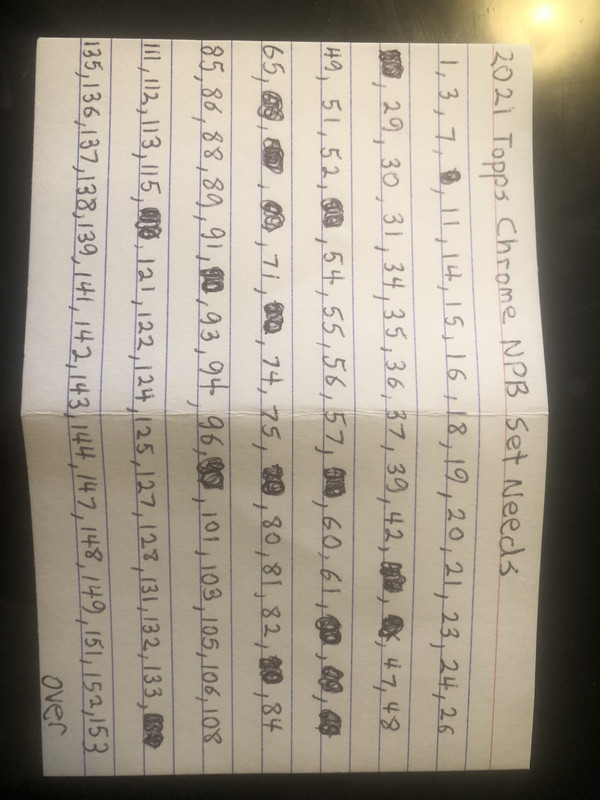 2021 Topps Chrome NPB Set Needs
1, 3, 7, 11, 14, 15, 16, 18, 19, 20, 21, 23, 24, 26
, 29, 30, 31, 34, 35, 36, 37, 39, 42, 47, 48
49, 51, 52, 54, 55, 56, 57, 60, 61,
65, 71, 74, 75, 80, 81, 82, 84
85, 86, 88, 89, 91, 93, 94, 96, 101, 103, 105, 106, 108
111, 112, 113, 115, 121, 122, 124, 125, 127, 128, 131, 132, 133,
135, 136, 137, 138, 139, 141, 142, 143, 144, 147, 148, 149, 151, 152, 153
over